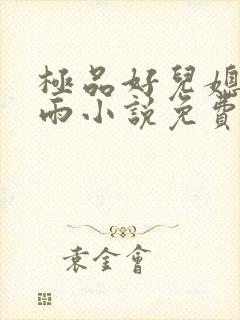 極品好兒媳
雨小說免費
袁金會